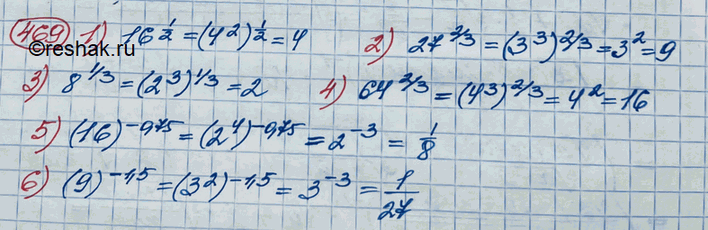 469 1) 16^(1/2) = (4^2)^(1/2) = 4 2) 27^(2/3) = (3^3)^(2/3) = 3^2 = 9
©reshak.ru
3) 8^(1/3) = (2^3)^(1/3) = 2 4) 64^(2/3) = (4^3)^(2/3) = 4^2 = 16
5) (16)^(-0,75) = (2^4)^(-0,75) = 2^(-3) = 1/8
6) (9)^(-1,5) = (3^2)^(-1,5) = 3^(-3) = 1/27